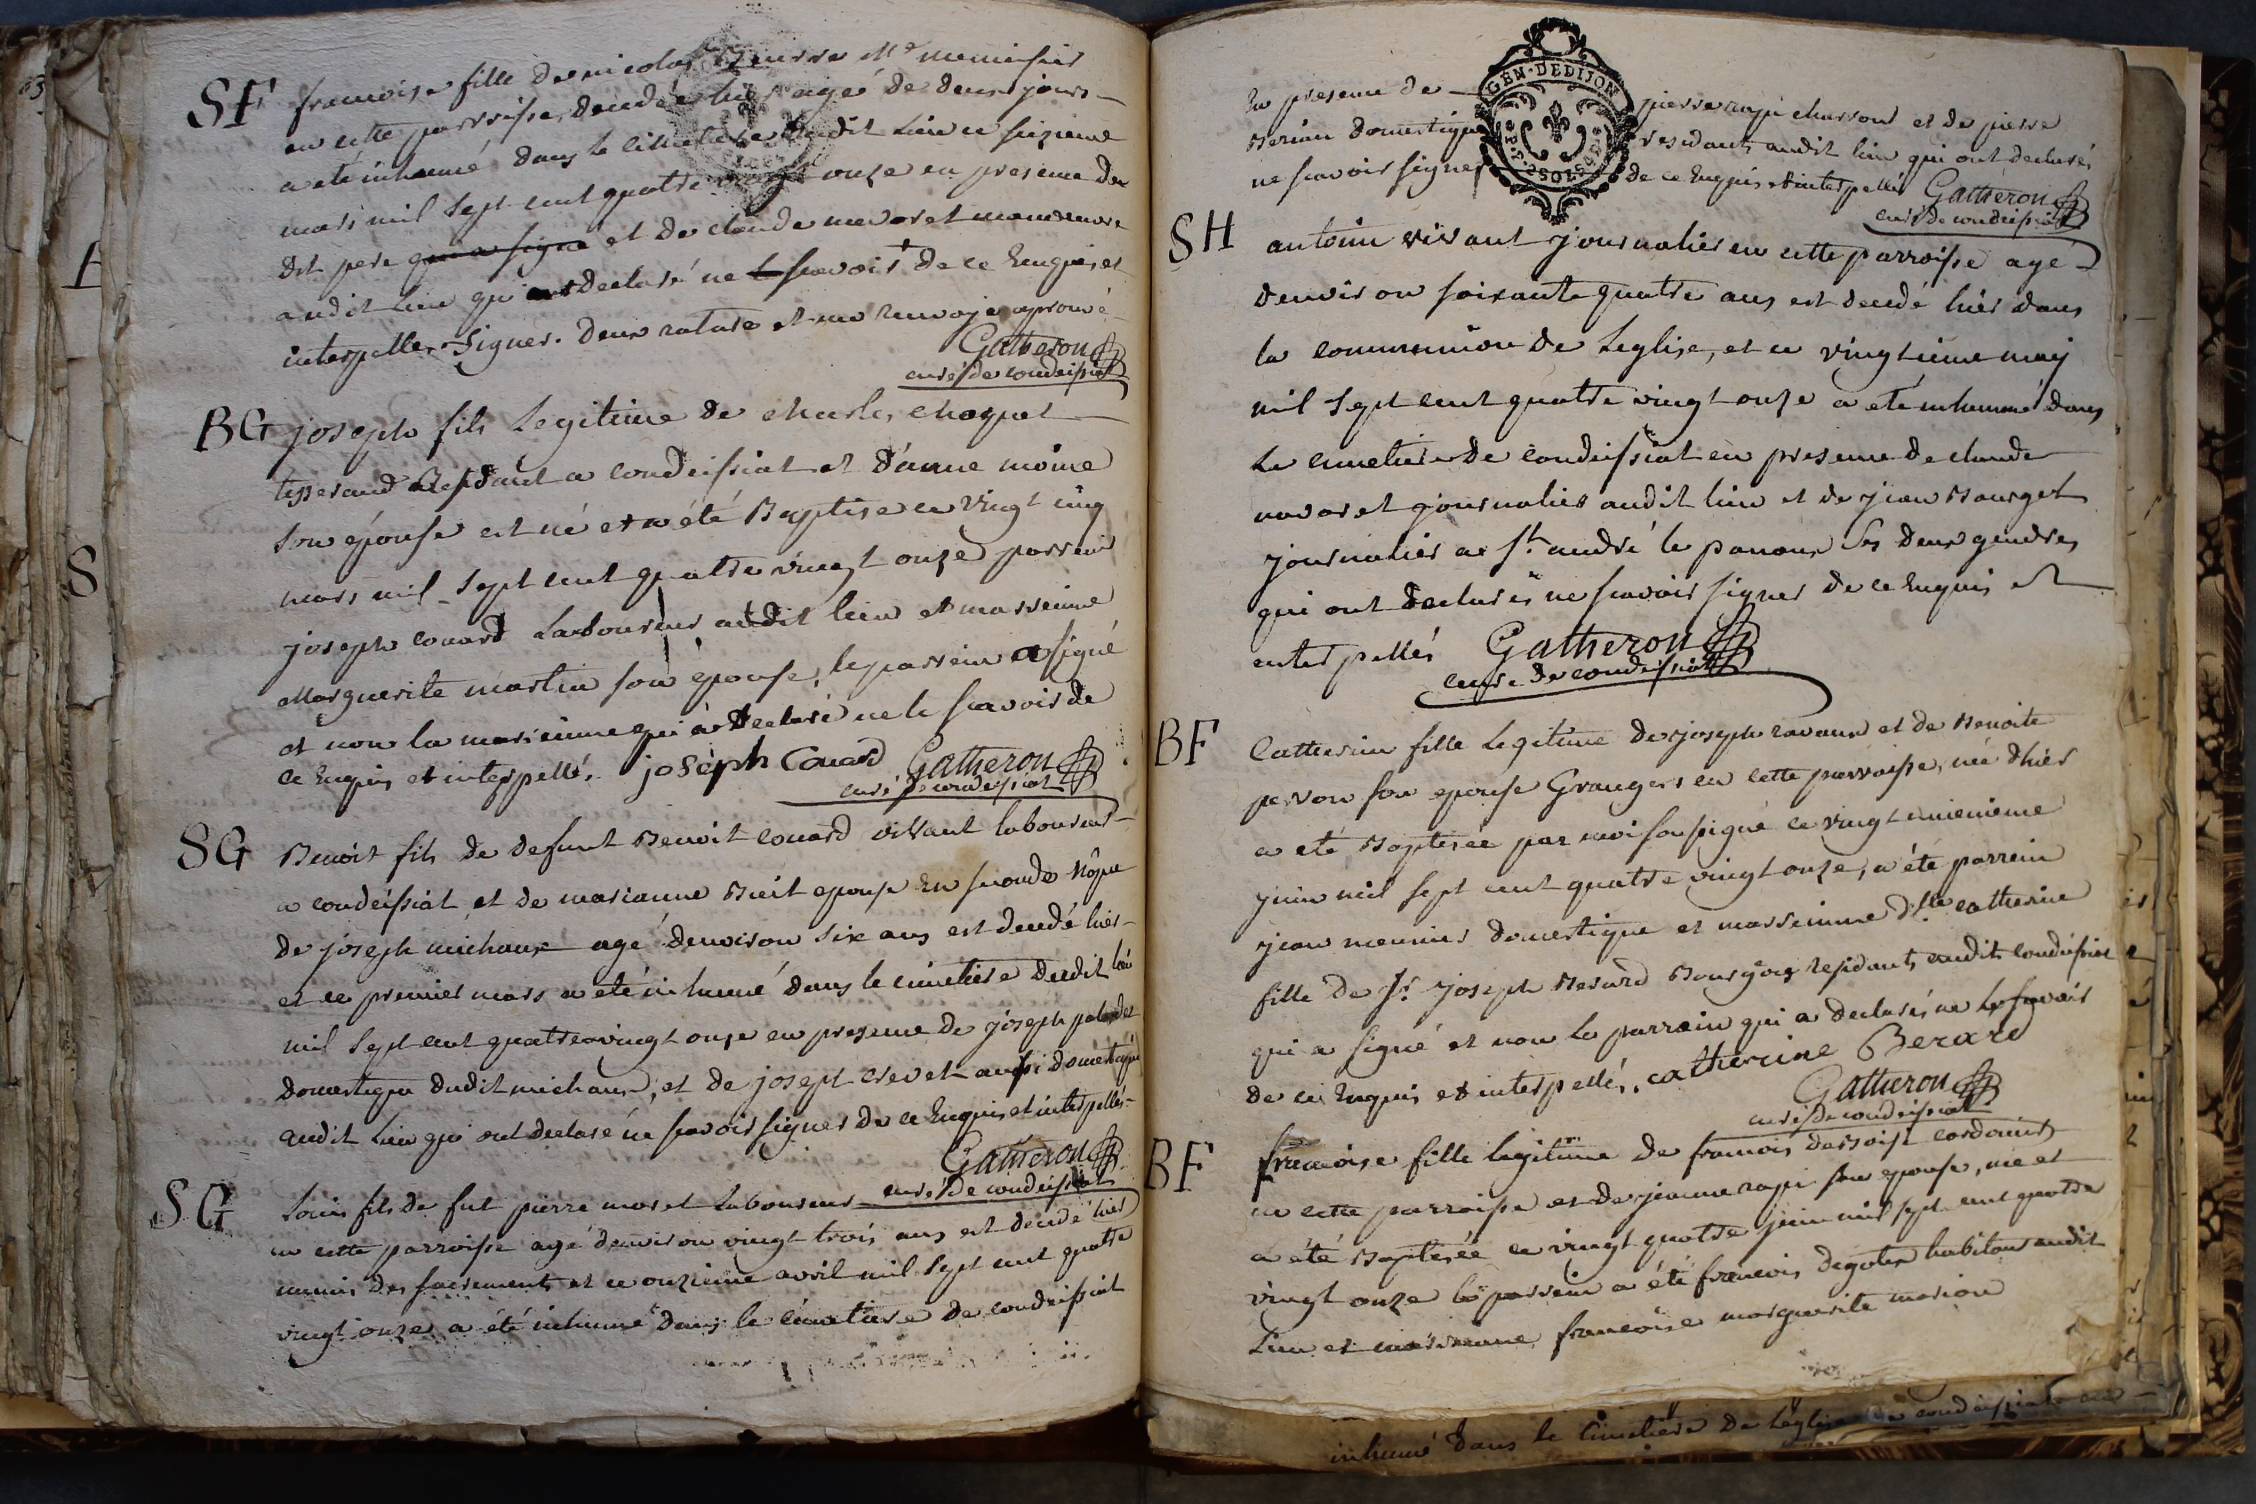 SF francoise fille de nicolas Beurre Me menuisier
en cette parroisse, decedée hier agé de deux jours
a été inhumé dans le cimetiere dudit Lieu ce seizieme
mars mil sept cent quatre vingt onze en presence du
dit pere qui a signé et de claude navoret manoeuvre
audit Lieu qui ont declaré ne le scavoir de ce Enquis et
interpellé Signer. deux rature et un renvoje aprouvé
Gatheron
curé de condeissiat
BG joseph fils Legitime de charles choquet
tisserand Residant a condeissiat et d'anne moine
son épouse est né et a été Baptise ce vingt cinq
mars mil sept cent quatre vingt onze parrein
joseph couard Laboureur audit lieu et marreinne
Marguerite martin son epouse, le parrein a signé
et non la marreinne qui a declaré ne le scavoir de
ce Enquis et interpellé. joseph Couard Gatheron
curé de condeissiat
SG Benoit fils de defunt Benoit couard vivant laboureur
a condeissiat et de marianne Buit epouse En seconde Nôpce
de joseph michaux agé denviron six ans est decedé hier
et ce premier mars a été inhumé dans le cimetiere dudit lieu
mil sept cent quatre vingt onze en presence de joseph
domestique dudit michaux, et de joseph crevet aussi domestique
audit Lieu qui ont declaré ne scavoir signer de ce Enquis et interpellés
Gatheron
curé de condeissiat
SG Louis fils de fut pierre moret Laboureur
en cette parroisse agé denviron vingt trois ans est decedé hier
munis des sacrements et ce onzieme avril mil sept cent quatre
vingt onze a été inhumé dans le cimetiere de condeissiat
En presence de pierre rapi charron et de pierre
Berium domestique residants audit lieu qui ont declarés
ne scavoir signer de ce Enquis et interpellés Gatheron
curé de condeissiat
GEN. DE DIJON
SH antoine vivant journalier en cette parroisse agé
denviron soixante quatre ans est decedé hier dans
la communion de Leglise, et ce vingtieme maj
mil sept cent quatre vingt onze a été inhumé dans
Le cimetiere de condeissiat en presence de claude
navoret journalier audit lieu et de jean Bourget
journalier a St. andré le panoux ses deux gendres
qui ont declarés ne scavoir signer de ce Enquis et
enterpellés Gatheron
curé de condeissiat
BF Catherine fille Legitime de joseph ravaux et de Benoite
pervon son epouse Grangers en cette parroisse, née d'hier
a été Baptisée par moi soussigné ce vingt unienieme
juin mil sept cent quatre vingt onze, a été parrein
jean meunier domestique et marreinne dlle catherine
fille de Sr. joseph Berard Bourgois residants audit condeissiat
qui a signé et non le parrein qui a declaré ne le scavoir
de ce Enquis et interpellés. catherine Berard
Gatheron
curé de condeissiat
BF francoise fille legitime de francois desroise cordonier
en cette parroisse et de jeanne rapi son epouse, née et
a été Baptisée ce vingt quatre juin mil sept cent quatre
vingt onze le parrein a été francois degoter habitant audit
Lieu et marreinne francoise marguerite marion
inhumé dans le cimetiere de Leglise de condeissiat